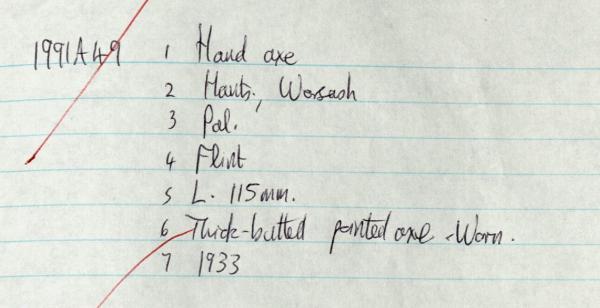 1991A49 1 Hand axe
2 Hants., Warsash
3 Pal.
4 Flint
5 L. 115mm.
6 Thick-butted pointed axe - Worn.
7 1933